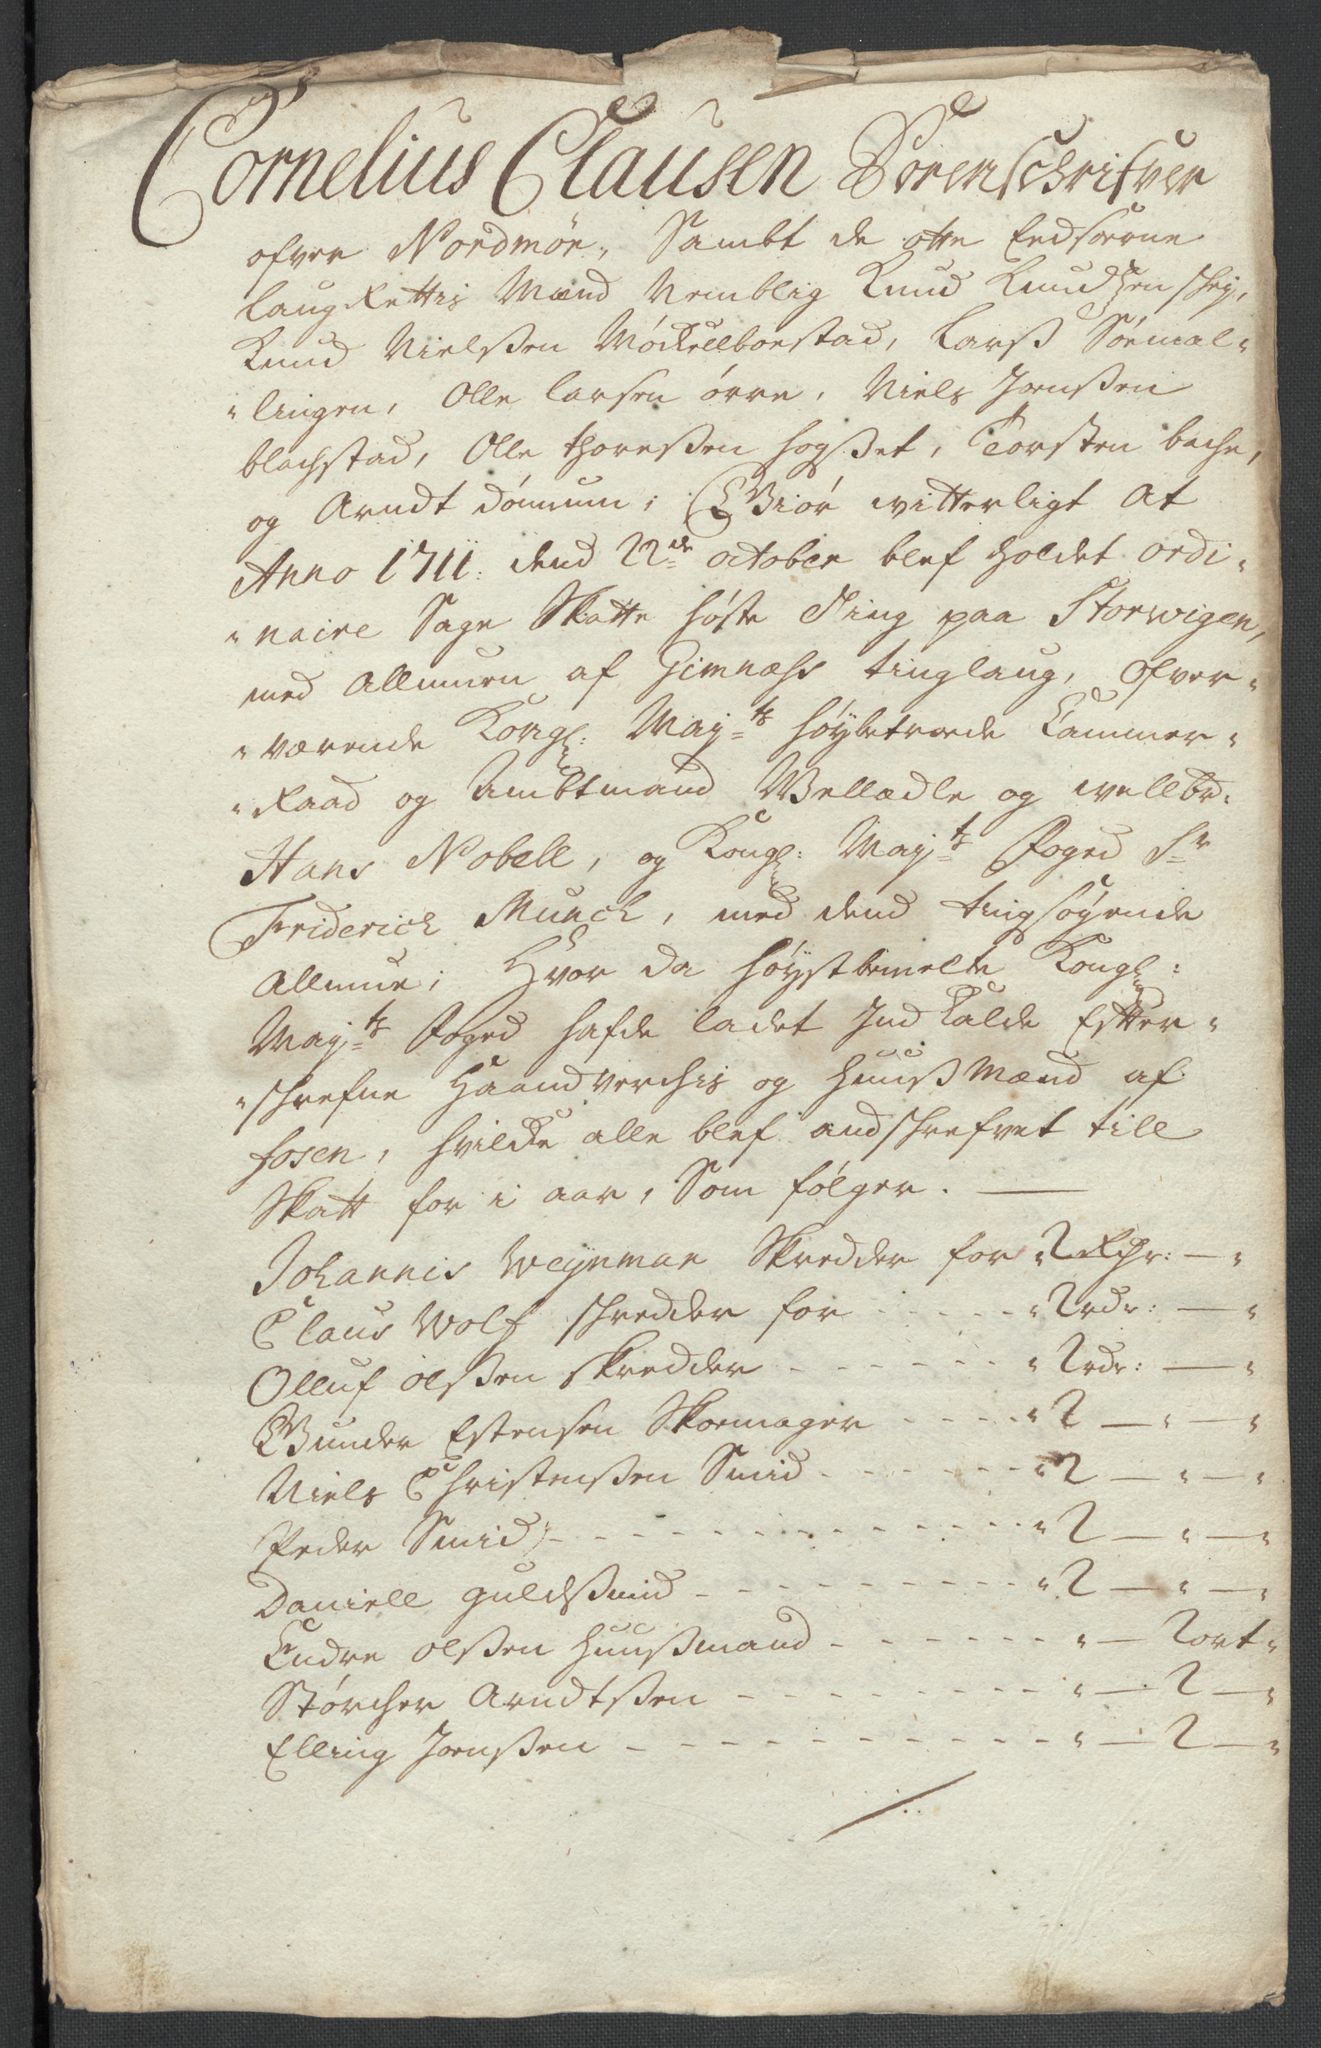 Cornelius Clausen Sorenschrifver
ofver Nordmør, Sambt de otte Eedsorne
laugRettis Mænd Nemblig Knud Knudsen schey,
Knud Nielßen Möckelboestad, Larß Sörmal-
-lingen, Olle Larsen örre, Niels Jonßen
blachstad, Olle Thoreßen hogßet, Torsten bache,
og Arndt Dönnum; Giör witterligt At
Anno 1711. dend 22de october blef holdet ordi-
-naire Sage Skatte høste Ting paa Storwigen,
med Allmuen af Gimnæhs tinglaug, Ofver-
-værende Kongl: Mayts høybetroede Cammer-
-Raad og Ambtmand Wellædle og wellbr:
Hans Nobell, og Kongl: Mayts Foged Sr
Friderich Munch, med dend tingsøgende
Allmue; Hvor da høystbemelte Kongl:
Mayts Foged hafde ladet Jndkalde Efter-
-schrefne Haandverchis og Huußmænd af
fosen, hvilcke alle blef andschrefvet till
Skatt for i aar, Som følger. —
Johannis Weynman Skredder for 2 Rdr: —
Claus Wolf schredder for - - - 2 rdr: —
Olluf olßen skredder - - - 2 rdr: —
Gunder Estensen Skoemager - - - 2 — " — "
Niels Christenßen Smid - - - 2 — " — "
Peder Smid - - - 2 — " — "
Daniell guldßmid - - - 2 — " — "
Endre olßen Huußmand - - - " — 2 ort "
Störcher Arndtßen - - - " — 2 — "
Elling Jonßen - - - " — 2 — "